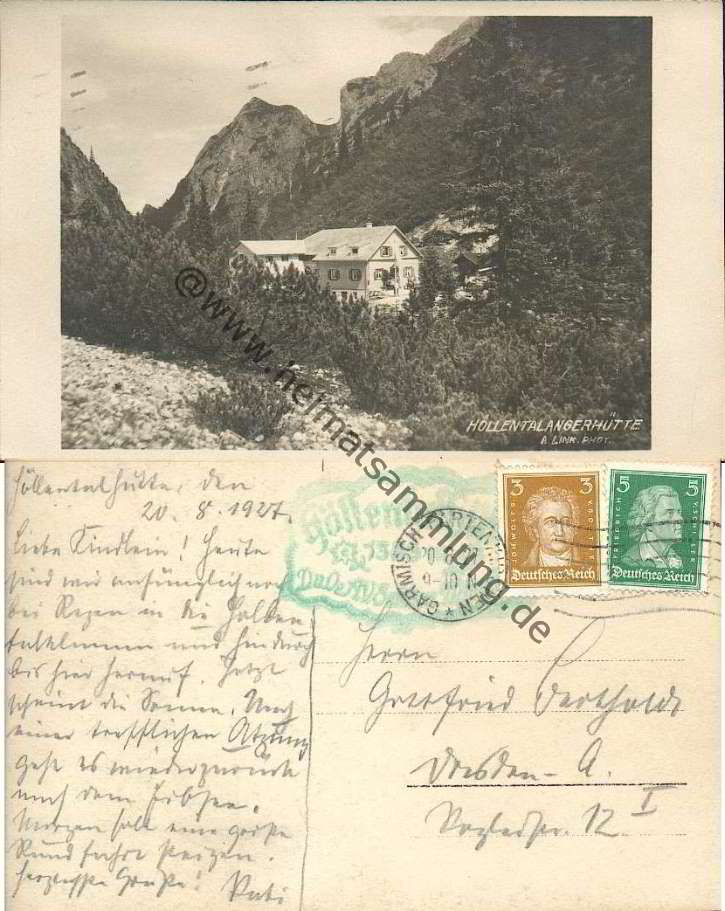 HÖLLENTALANGERHÜTTE
A. LINK. PHOT.
@www.heimatsammlung.de
Höllentalhütte, den
20. 8. 1927.
Liebe Kindlein! Heute
sind wir anfänglich noch
bei Regen in die Höllen-
talklamm und hindurch
bis hier herauf. Jetzt
scheint die Sonne. Nach
einer trefflichen Atzung
geht es wieder zurück
nach dem Eibsee.
Morgen soll eine große
Rundfahrt steigen.
Herzlichste Grüße! Vati
GARMISCH-PARTENKIRCHEN
9-10 N
3 3
Deutsches Reich
5 5
Deutsches Reich
Herrn
Gottfried Berthold
Dresden-A.
12. I